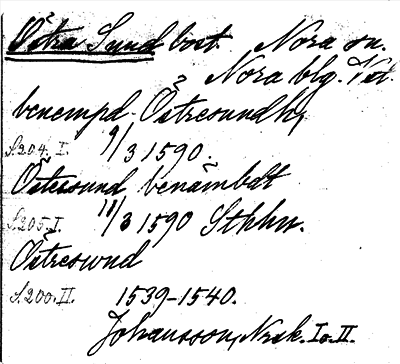 Östra Sund bost. Nora sn.
Nora blg. Vstl.
benempd. Östresundh,
S.204. I. 9/3 1590.
Östersund benämbdt
S.205. I. 11/3 1590 Sthhn.
Östresund
S.200. II. 1539-1540.
Johansson, Norsk. I o. II.